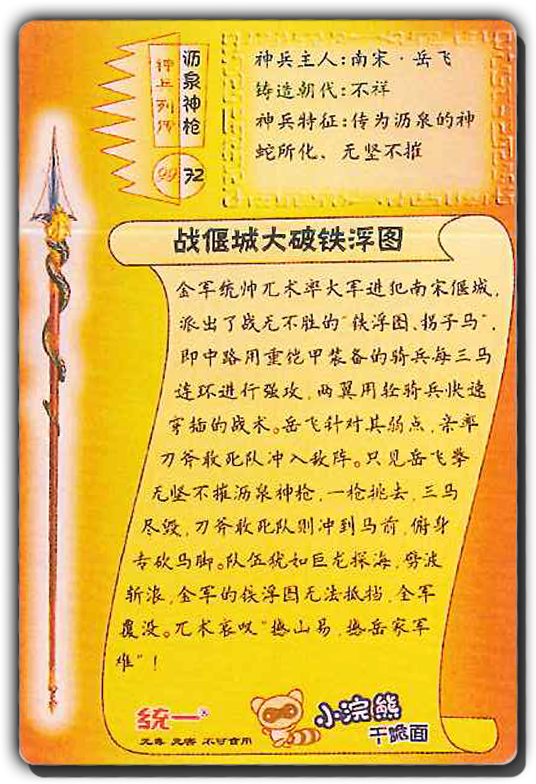 神兵列传
沥泉神枪
99 72
神兵主人:南宋·岳飞
铸造朝代:不祥
神兵特征:传为沥泉的神
蛇所化、无坚不摧
战偃城大破铁浮图
金军统帅兀术率大军进犯南宋偃城,
派出了战无不胜的“铁浮图、拐子马”,
即中路用重铠甲装备的骑兵每三马
连环进行强攻,两翼用轻骑兵快速
穿插的战术。岳飞针对其弱点,亲率
刀斧敢死队冲入敌阵。只见岳飞拏
无坚不摧沥泉神枪,一枪挑去,三马
尽毁,刀斧敢死队则冲到马前,俯身
专砍马脚。队伍犹如巨龙探海,劈波
斩浪,金军的铁浮图无法抵挡,全军
覆没。兀术哀叹“撼山易,撼岳家军
难”!
统一®
无毒 无害 不可食用
小浣熊
干脆面